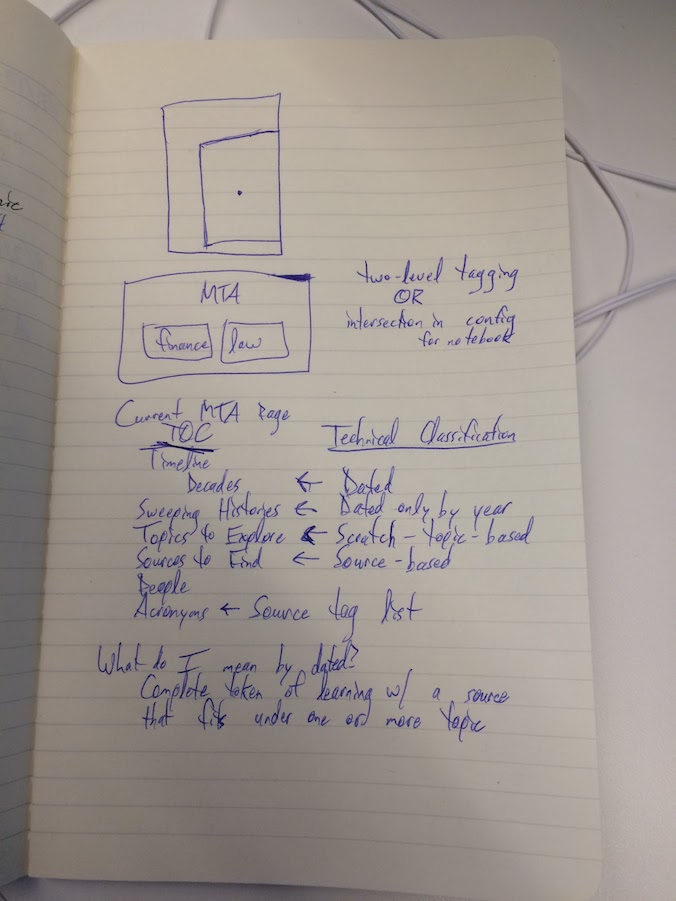 MTA
finance law
two-level tagging
OR
intersection in config
for notebook
Current MTA Page
TOC
Technical Classification
Timeline
Decades ← Dated
Sweeping Histories ← Dated only by year
Topics to Explore ← Scratch-topic-based
Sources to Find ← Source-based
People
Acronyms ← Source tag list
What do I mean by dated?
Complete token of learning w/ a source
that fits under one or more topic